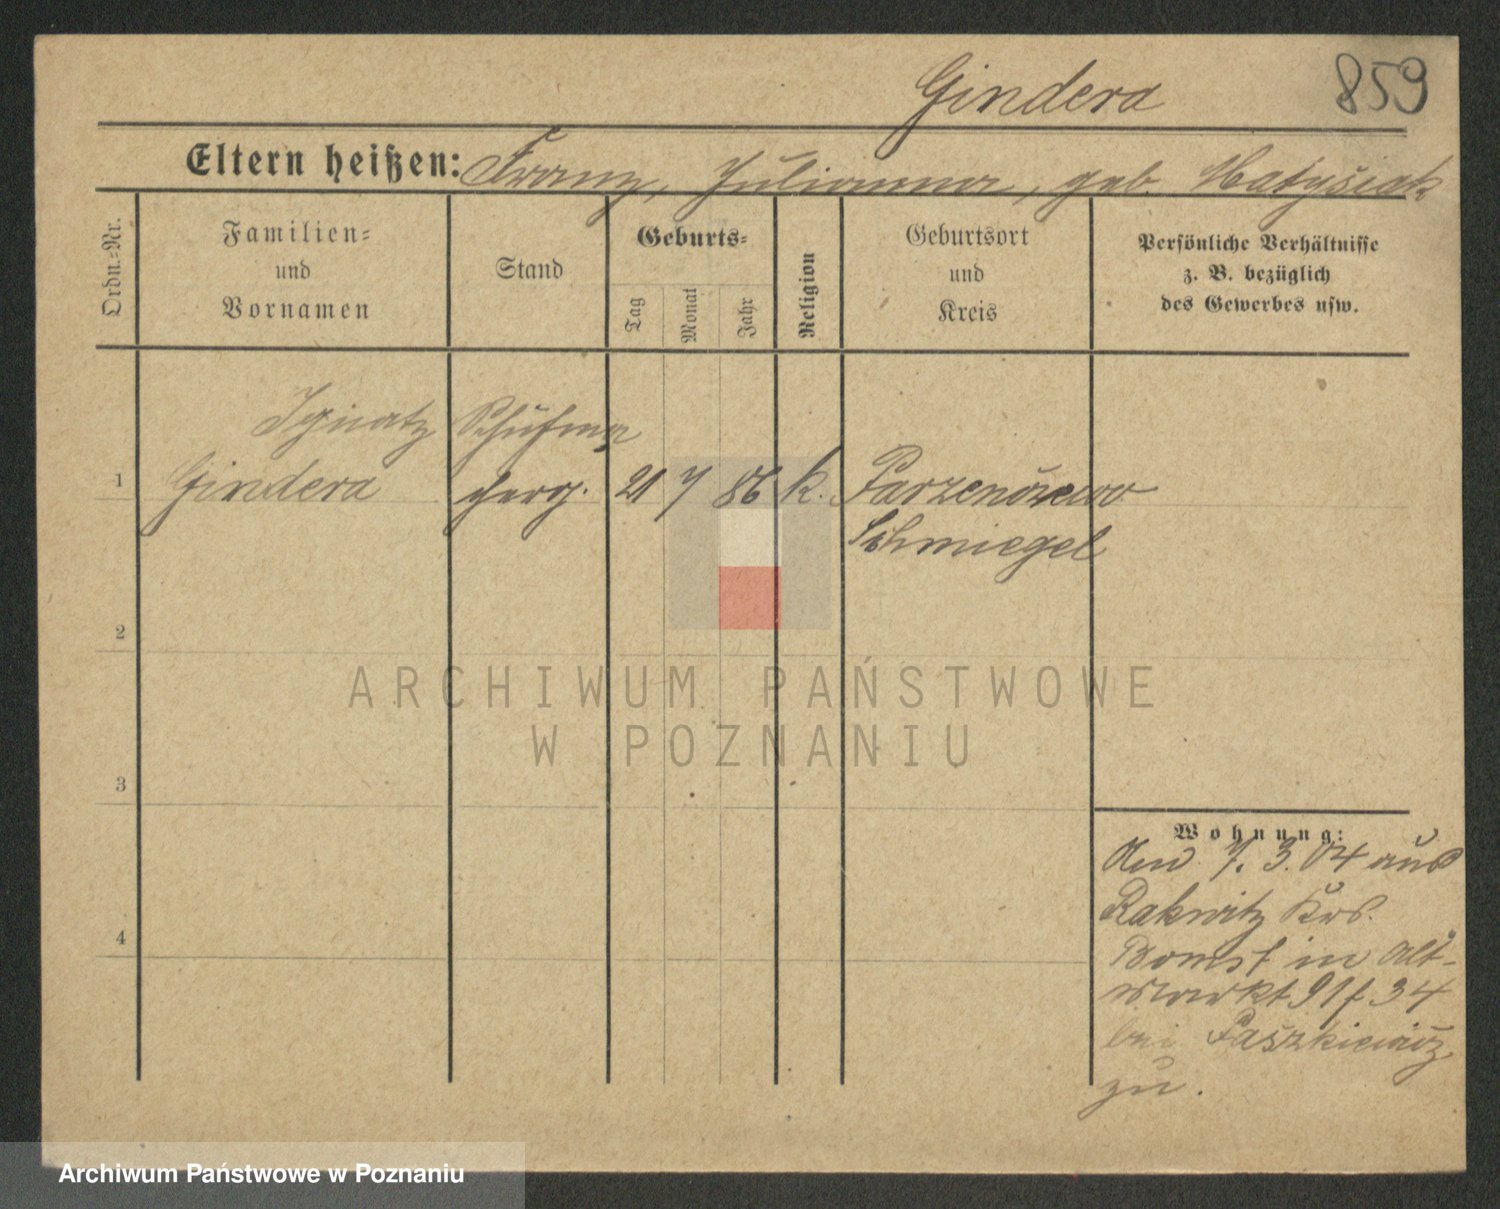 Gindera
859
Eltern heißen: Franz, Julianna, geb. Matysiak
Ordn.-Nr.
Familien-
und
Vornamen
Stand
Geburts-
Tag
Monat
Jahr
Religion
Geburtsort
und
Kreis
Persönliche Verhältnisse
z. B. bezüglich
des Gewerbes usw.
Ignatz
Schuhma
1 Gindera cherg. 21 7 86 k. Parzenczewo
Schmiegel
2
3
4
Wohnung:
Den 7. 3. 04 aus
Rakwitz Krs.
Bomst in Alt-
markt 91 f. 34
bei Paszkiewicz
zu.
ARCHIWUM PAŃSTWOWE
W POZNANIU
Archiwum Państwowe w Poznaniu